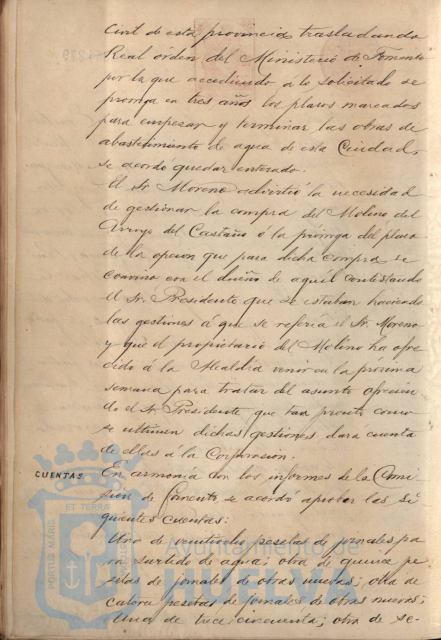 Civil de esta provincia trasladando
Real orden del Ministerio de Fomento
por la que accediendo á lo solicitado se
proroga en tres años los plazos marcados
para empezar y terminar las obras de
abastecimiento de agua de esta Ciudad,
se acordó quedar enterado.
El Sr. Moreno advirtió la necesidad
de gestionar la compra del Molino del
Arroyo del Castaño ó la próroga del plazo
de la opcion que para dicha compra se
convino con el dueño de aquél contestando
el Sr. Presidente que se estaban haciendo
las gestiones á que se referia el Sr. Moreno
y que el propietario del Molino ha ofre
cido á la Alcaldia venir en la próxima
semana para tratar del asunto ofrecien
do el Sr. Presidente que tan pronto como
se ultimen dichas gestiones dara cuenta
de ellas á la Corporacion.
CUENTAS
En armonia con los informes de la Comi
sion de Fomento se acordó aprobar las si
guientes cuentas:
Una de veintidos pesetas de jornales pa
ra surtido de agua; otra de quince pe
setas de jornales de obras nuevas; otra de
catorce pesetas de jornales de obras nuevas;
una de trece cincuenta; otra de se-
PORTUS MARIS
ET TERRÆ
Ayuntamiento de
HUELVA